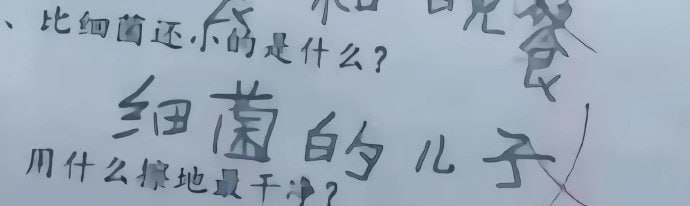 晚餐
、比细菌还小的是什么？
细菌的儿子
用什么擦地最干净？